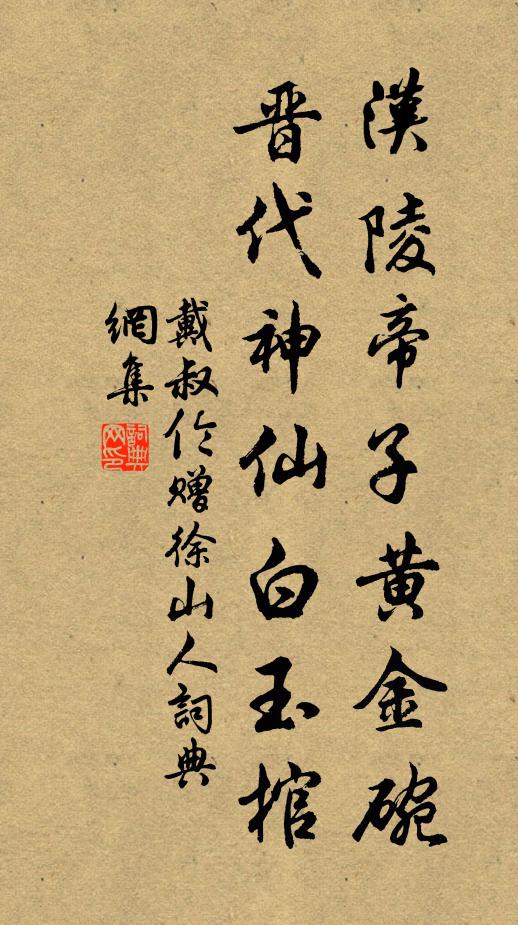 漢陵帝子黄金碗
晋代神仙白玉棺
戴叔伦赠徐山人詞典
網集
詞典網印